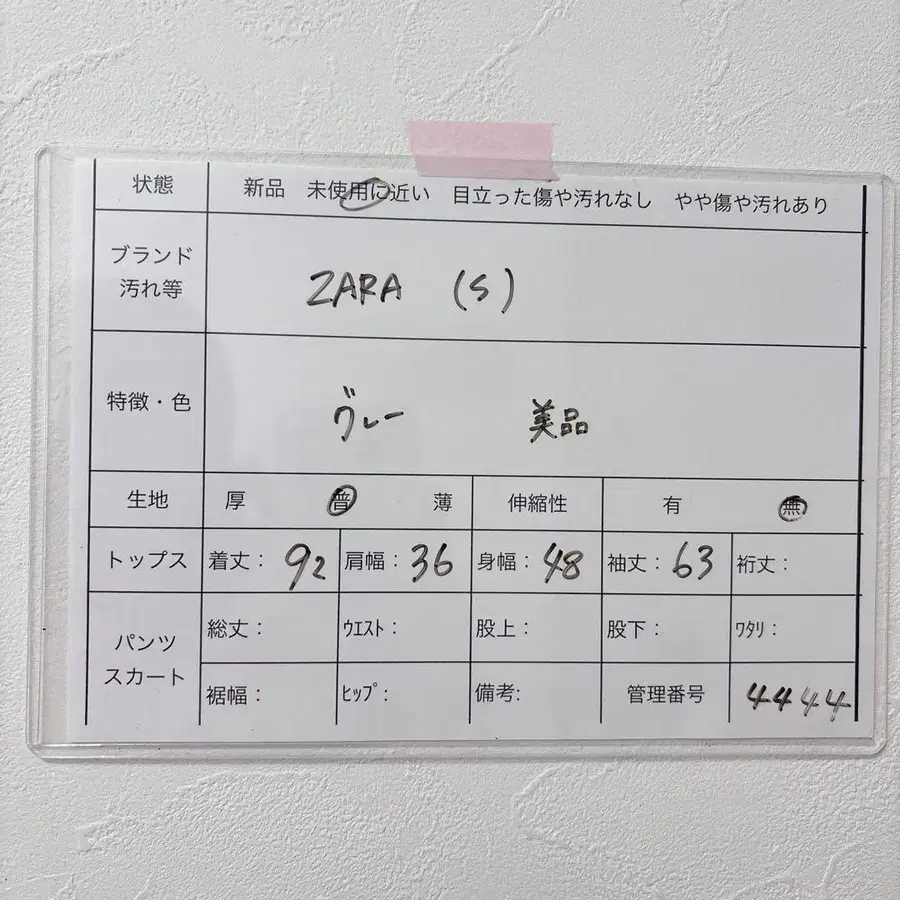 状態 新品 未使用に近い 目立った傷や汚れなし やや傷や汚れあり
ブランド
汚れ等
ZARA (S)
特徴・色 グレー 美品
生地 厚 普 薄 伸縮性 有 無
トップス 着丈: 92 肩幅: 36 身幅: 48 袖丈: 63 裄丈:
パンツ
スカート
総丈: ウエスト: 股上: 股下: ワタリ:
裾幅: ヒップ: 備考: 管理番号 4444